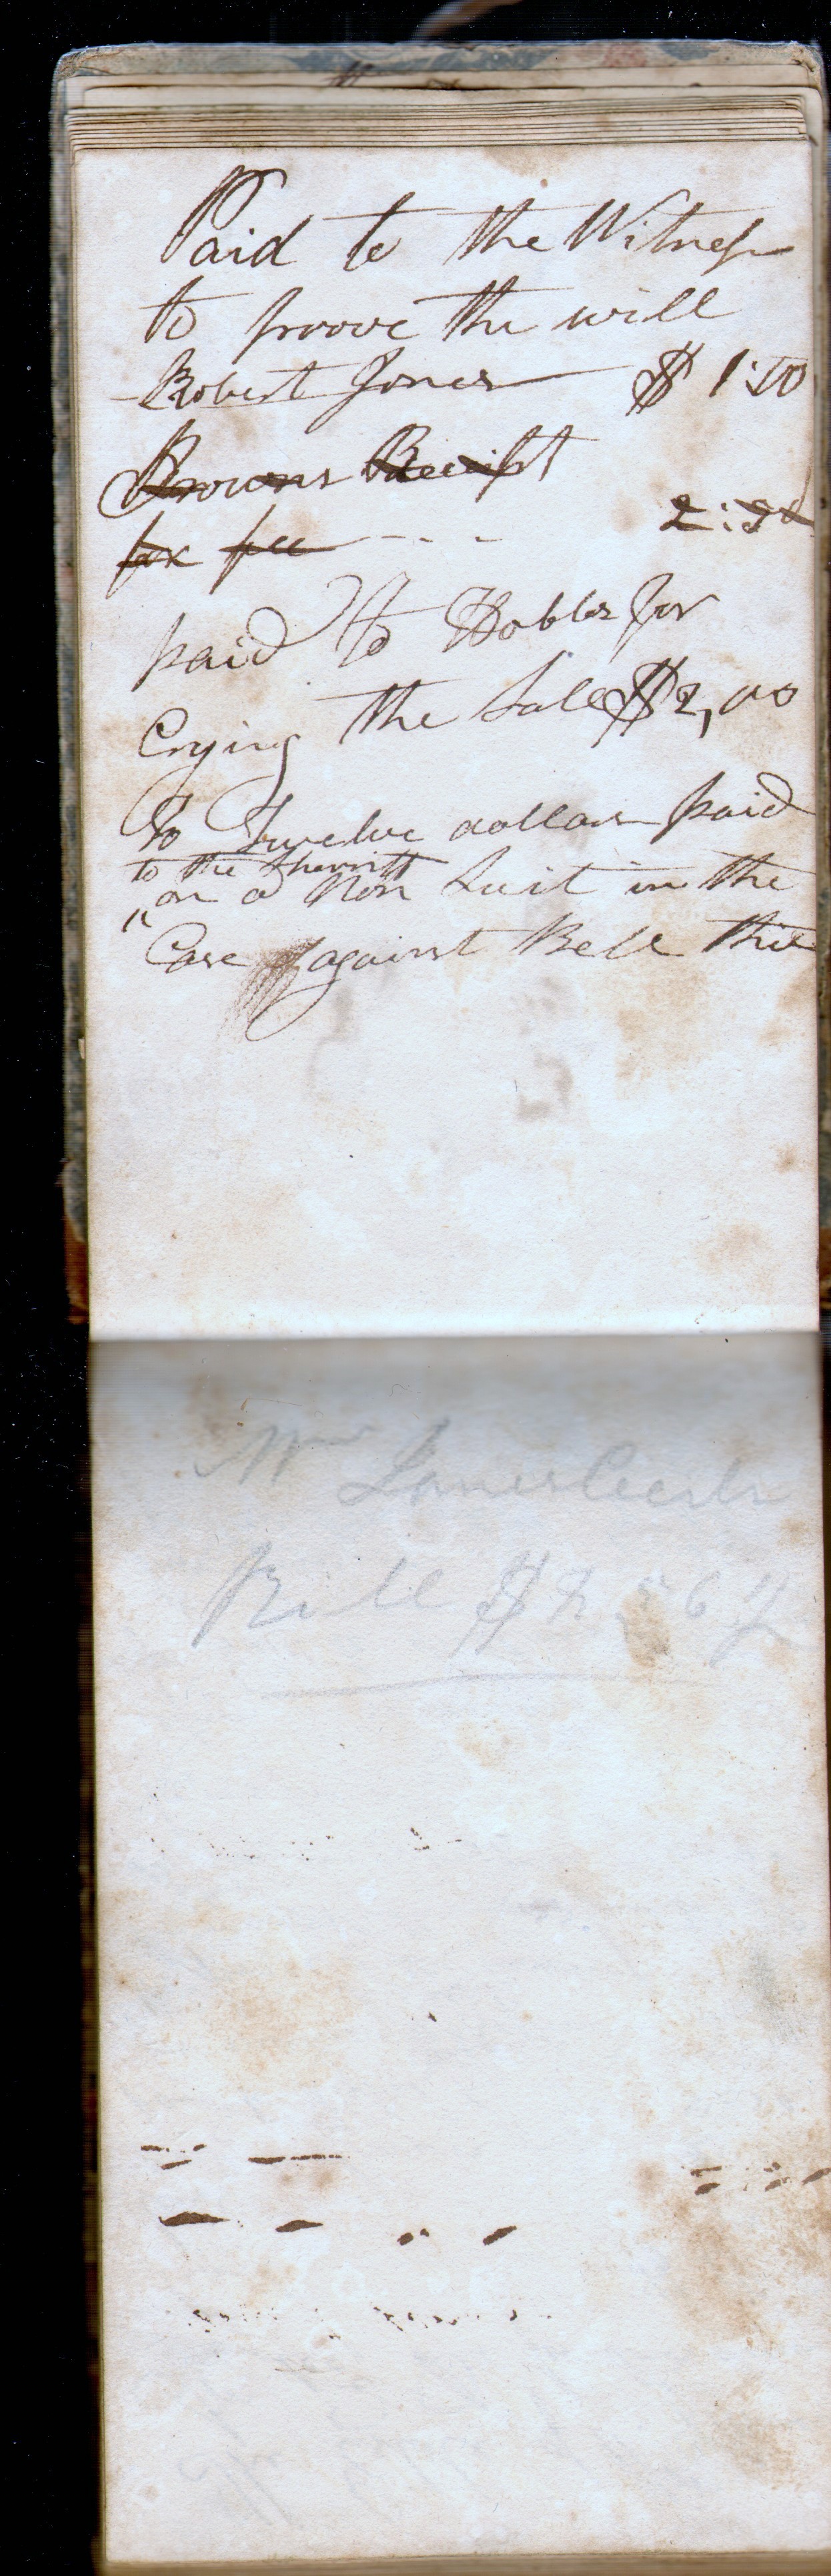 Paid to the Witness
to proove the will
Robert Jones $ 1:50
Browns Receipt
for fee - - - 2:50
paid to Hobbs for
Crying the Sale $2,00
To Twelve dollars paid
to the Sherriff
" on a Non Suit in the
Case against Bell this
Bill $2 56